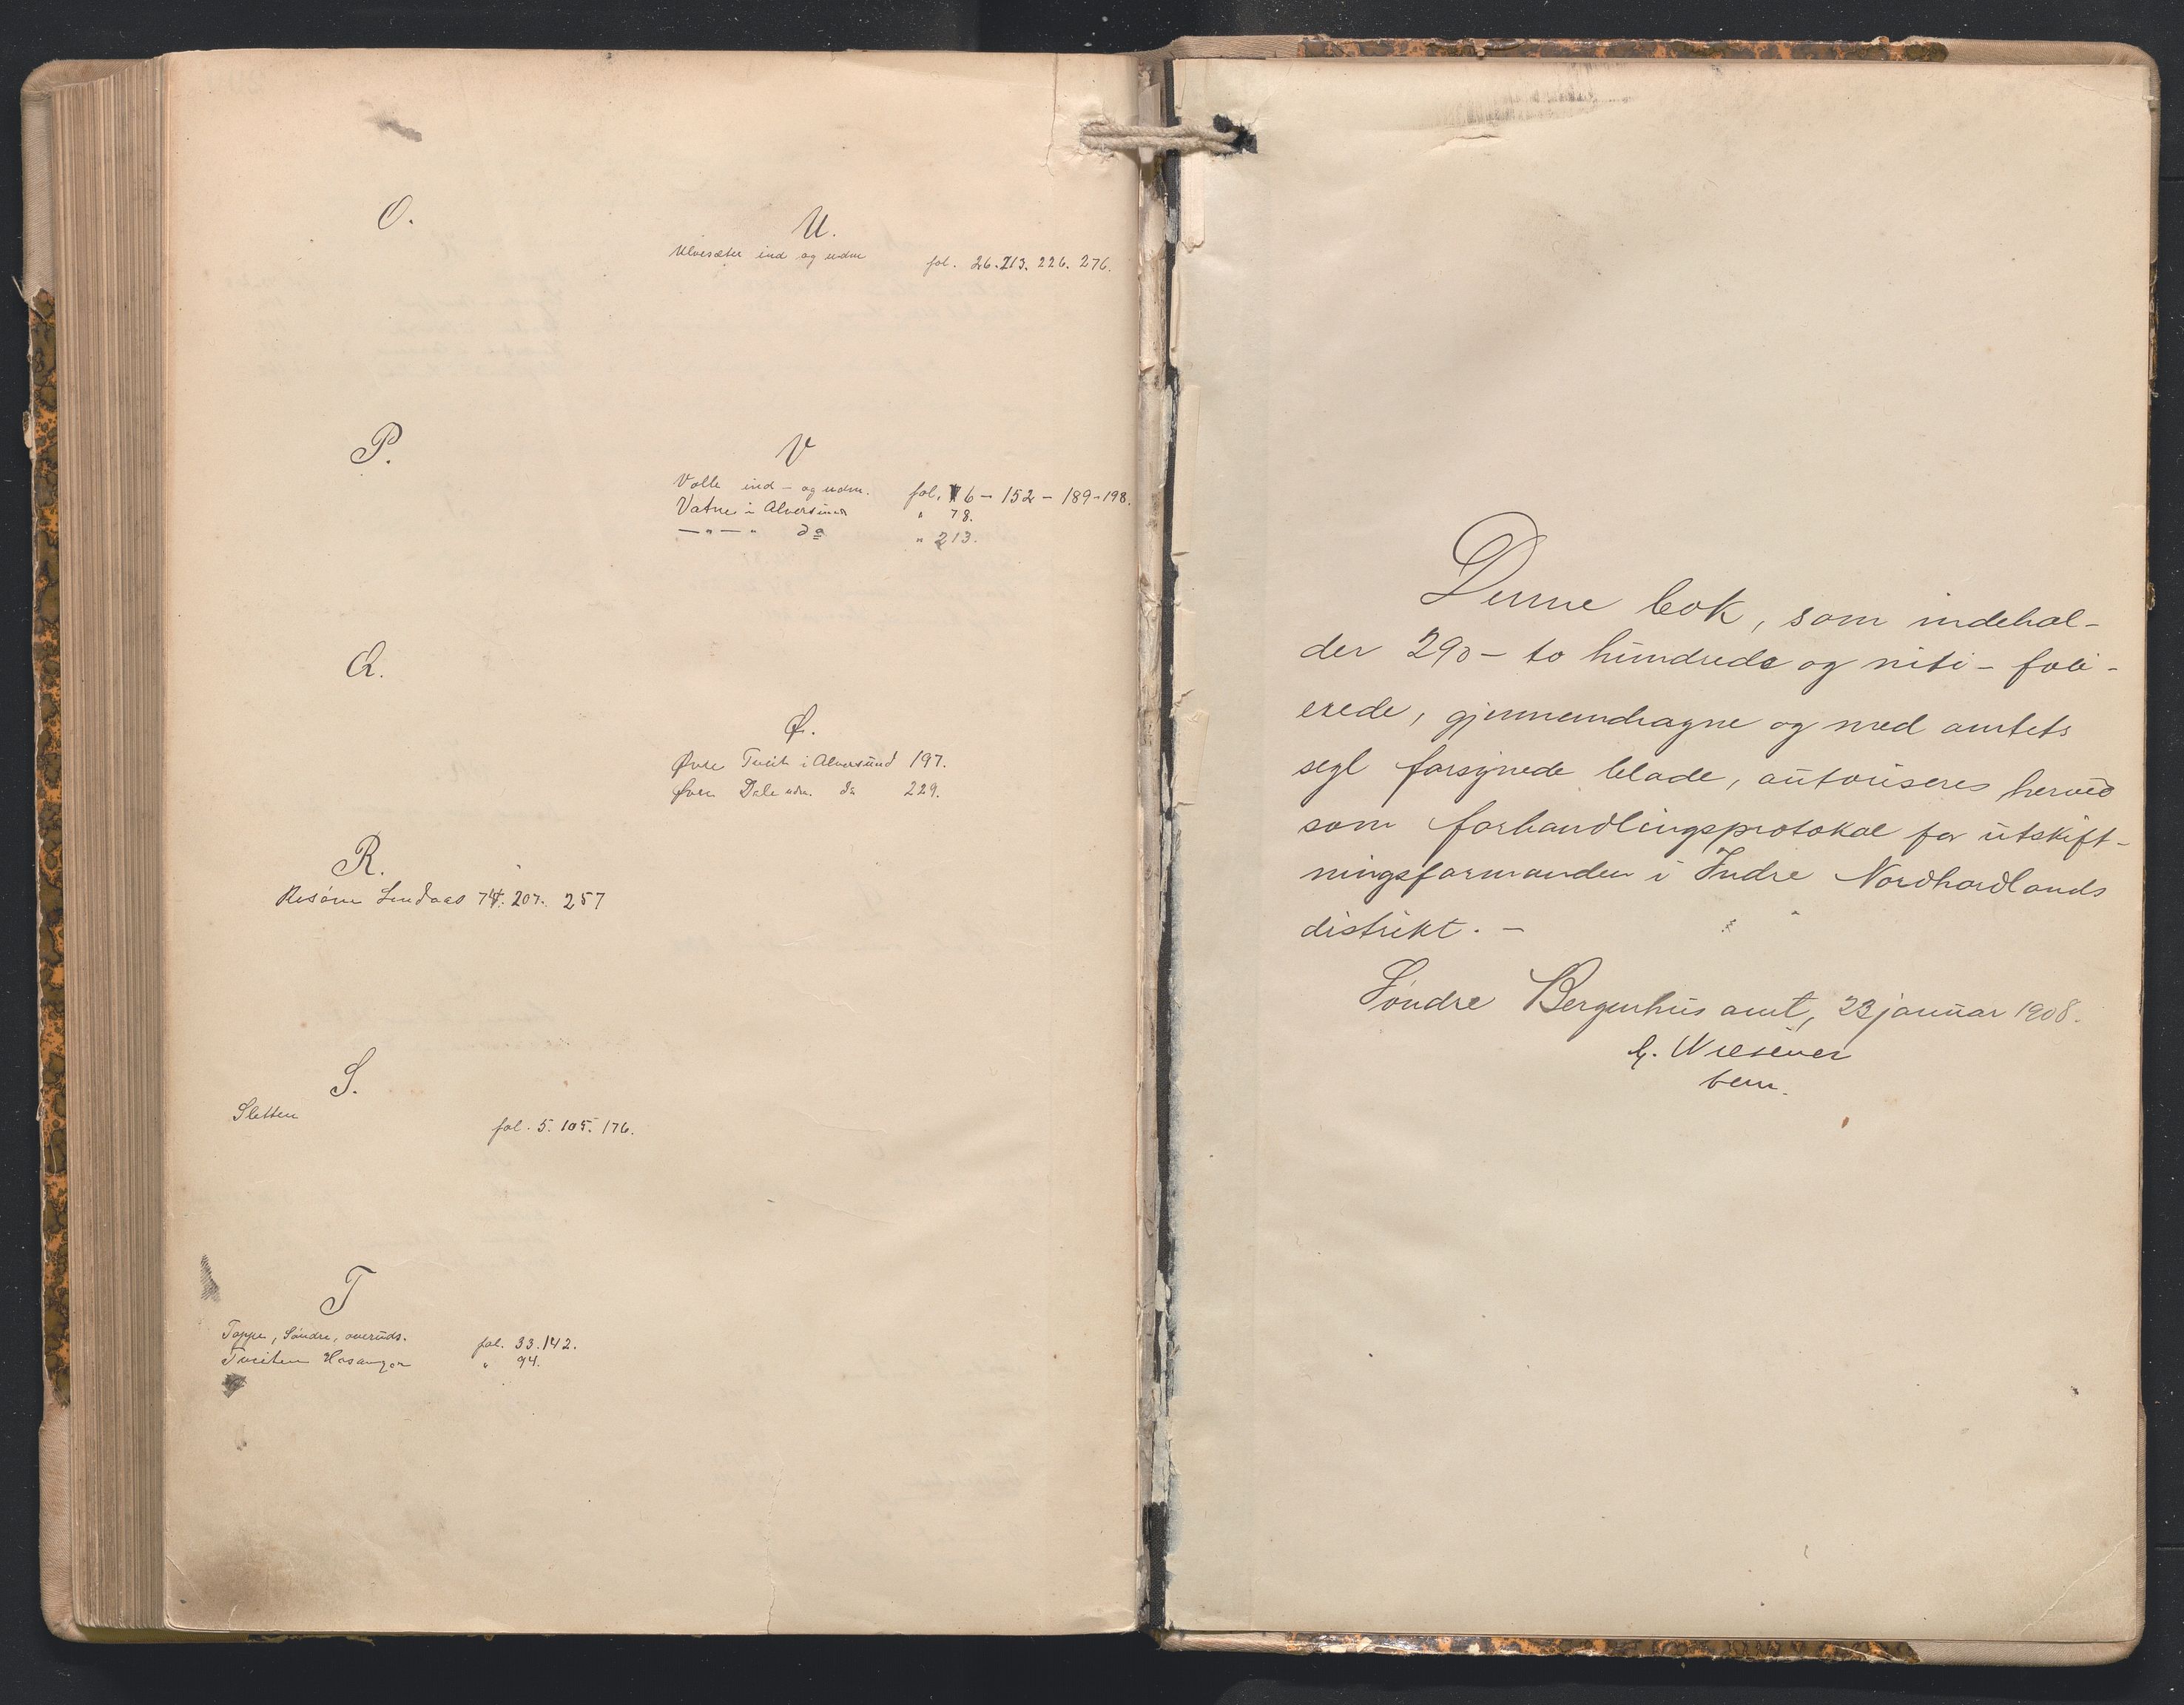 O.
P.
Q.
R.
Risöen Lindaas 74. 207. 257
S.
Sletten fol. 5. 105. 176.
T
Toppe, Söndre, overuds. fol. 33. 142.
Tveiten Hosanger " 94.
U.
Ulvesæter ind og udm fol. 26. 213. 226. 276.
V
Valle ind- og udm. fol. 6 - 152 - 189 - 198.
Vatne i Alversund " 78.
— " — " do " 213.
Ø.
Øvre Tveit i Alversund 197.
Øvre Dale udm. do 229.
Denne bok, som indehol-
der 290 - to hundrede og niti - foli-
erede, gjennemdragne og med amtets
segl forsynede blade, autoriseres herved
som forhandlingsprotokol for utskift-
ningsformanden i Indre Nordhordlands
distrikt. -
Söndre Bergenhus amt, 23 januar 1908.
Wiesener
bem.